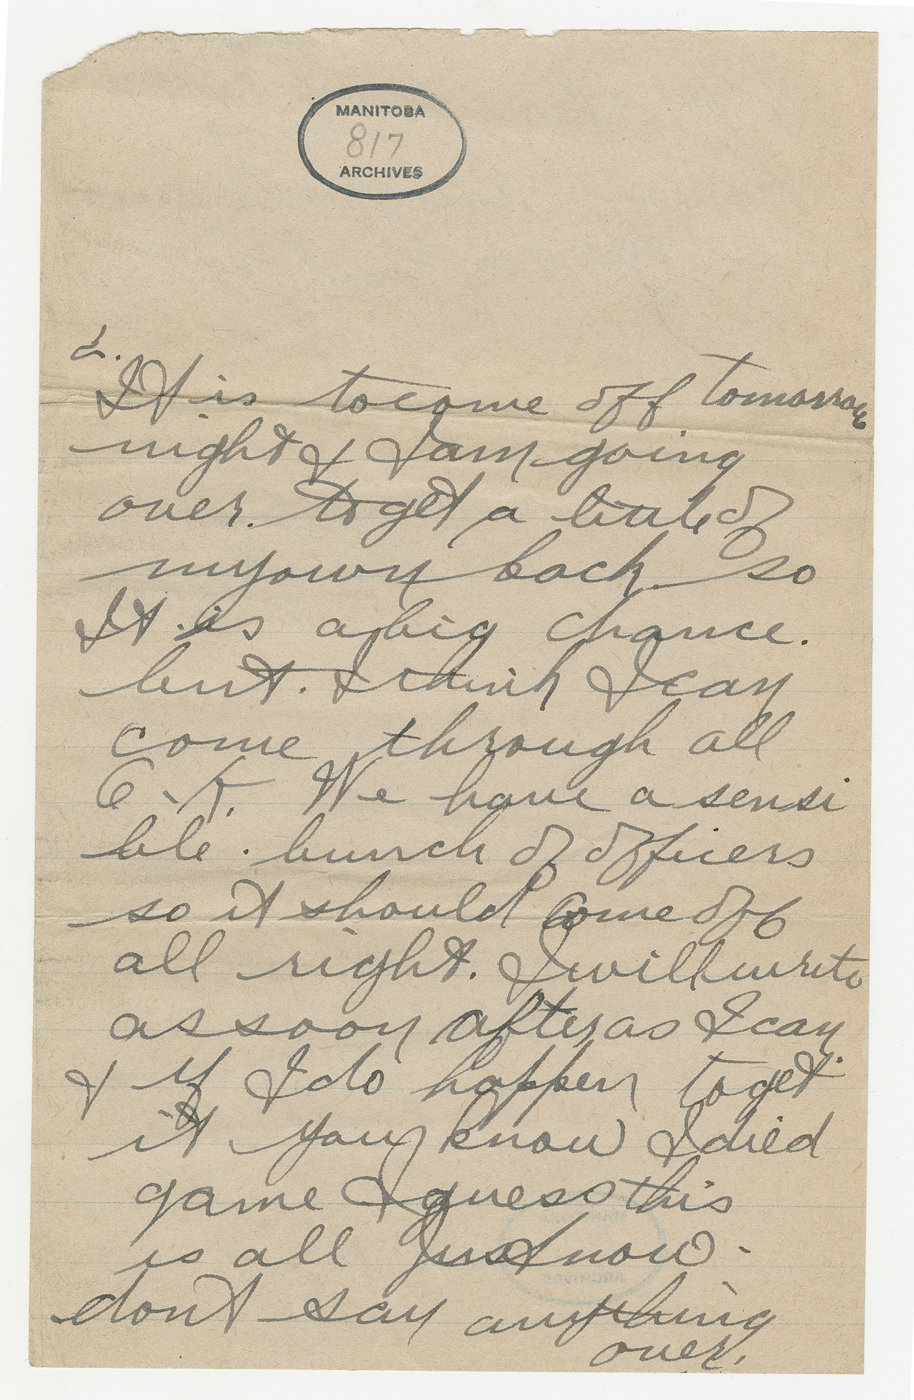 MANITOBA
817
ARCHIVES
2.
It is to come off tomorrow
night & I am going
over. to get a little of
my own back so
It is a big chance.
but. I think I can
come through all
O.K. We have a sensi
ble. bunch of officers
so it should come off
all right. I will write
as soon after as I can
& if I do happen to get
it you know I died
game I guess this
is all just now.
don't say anything
over.